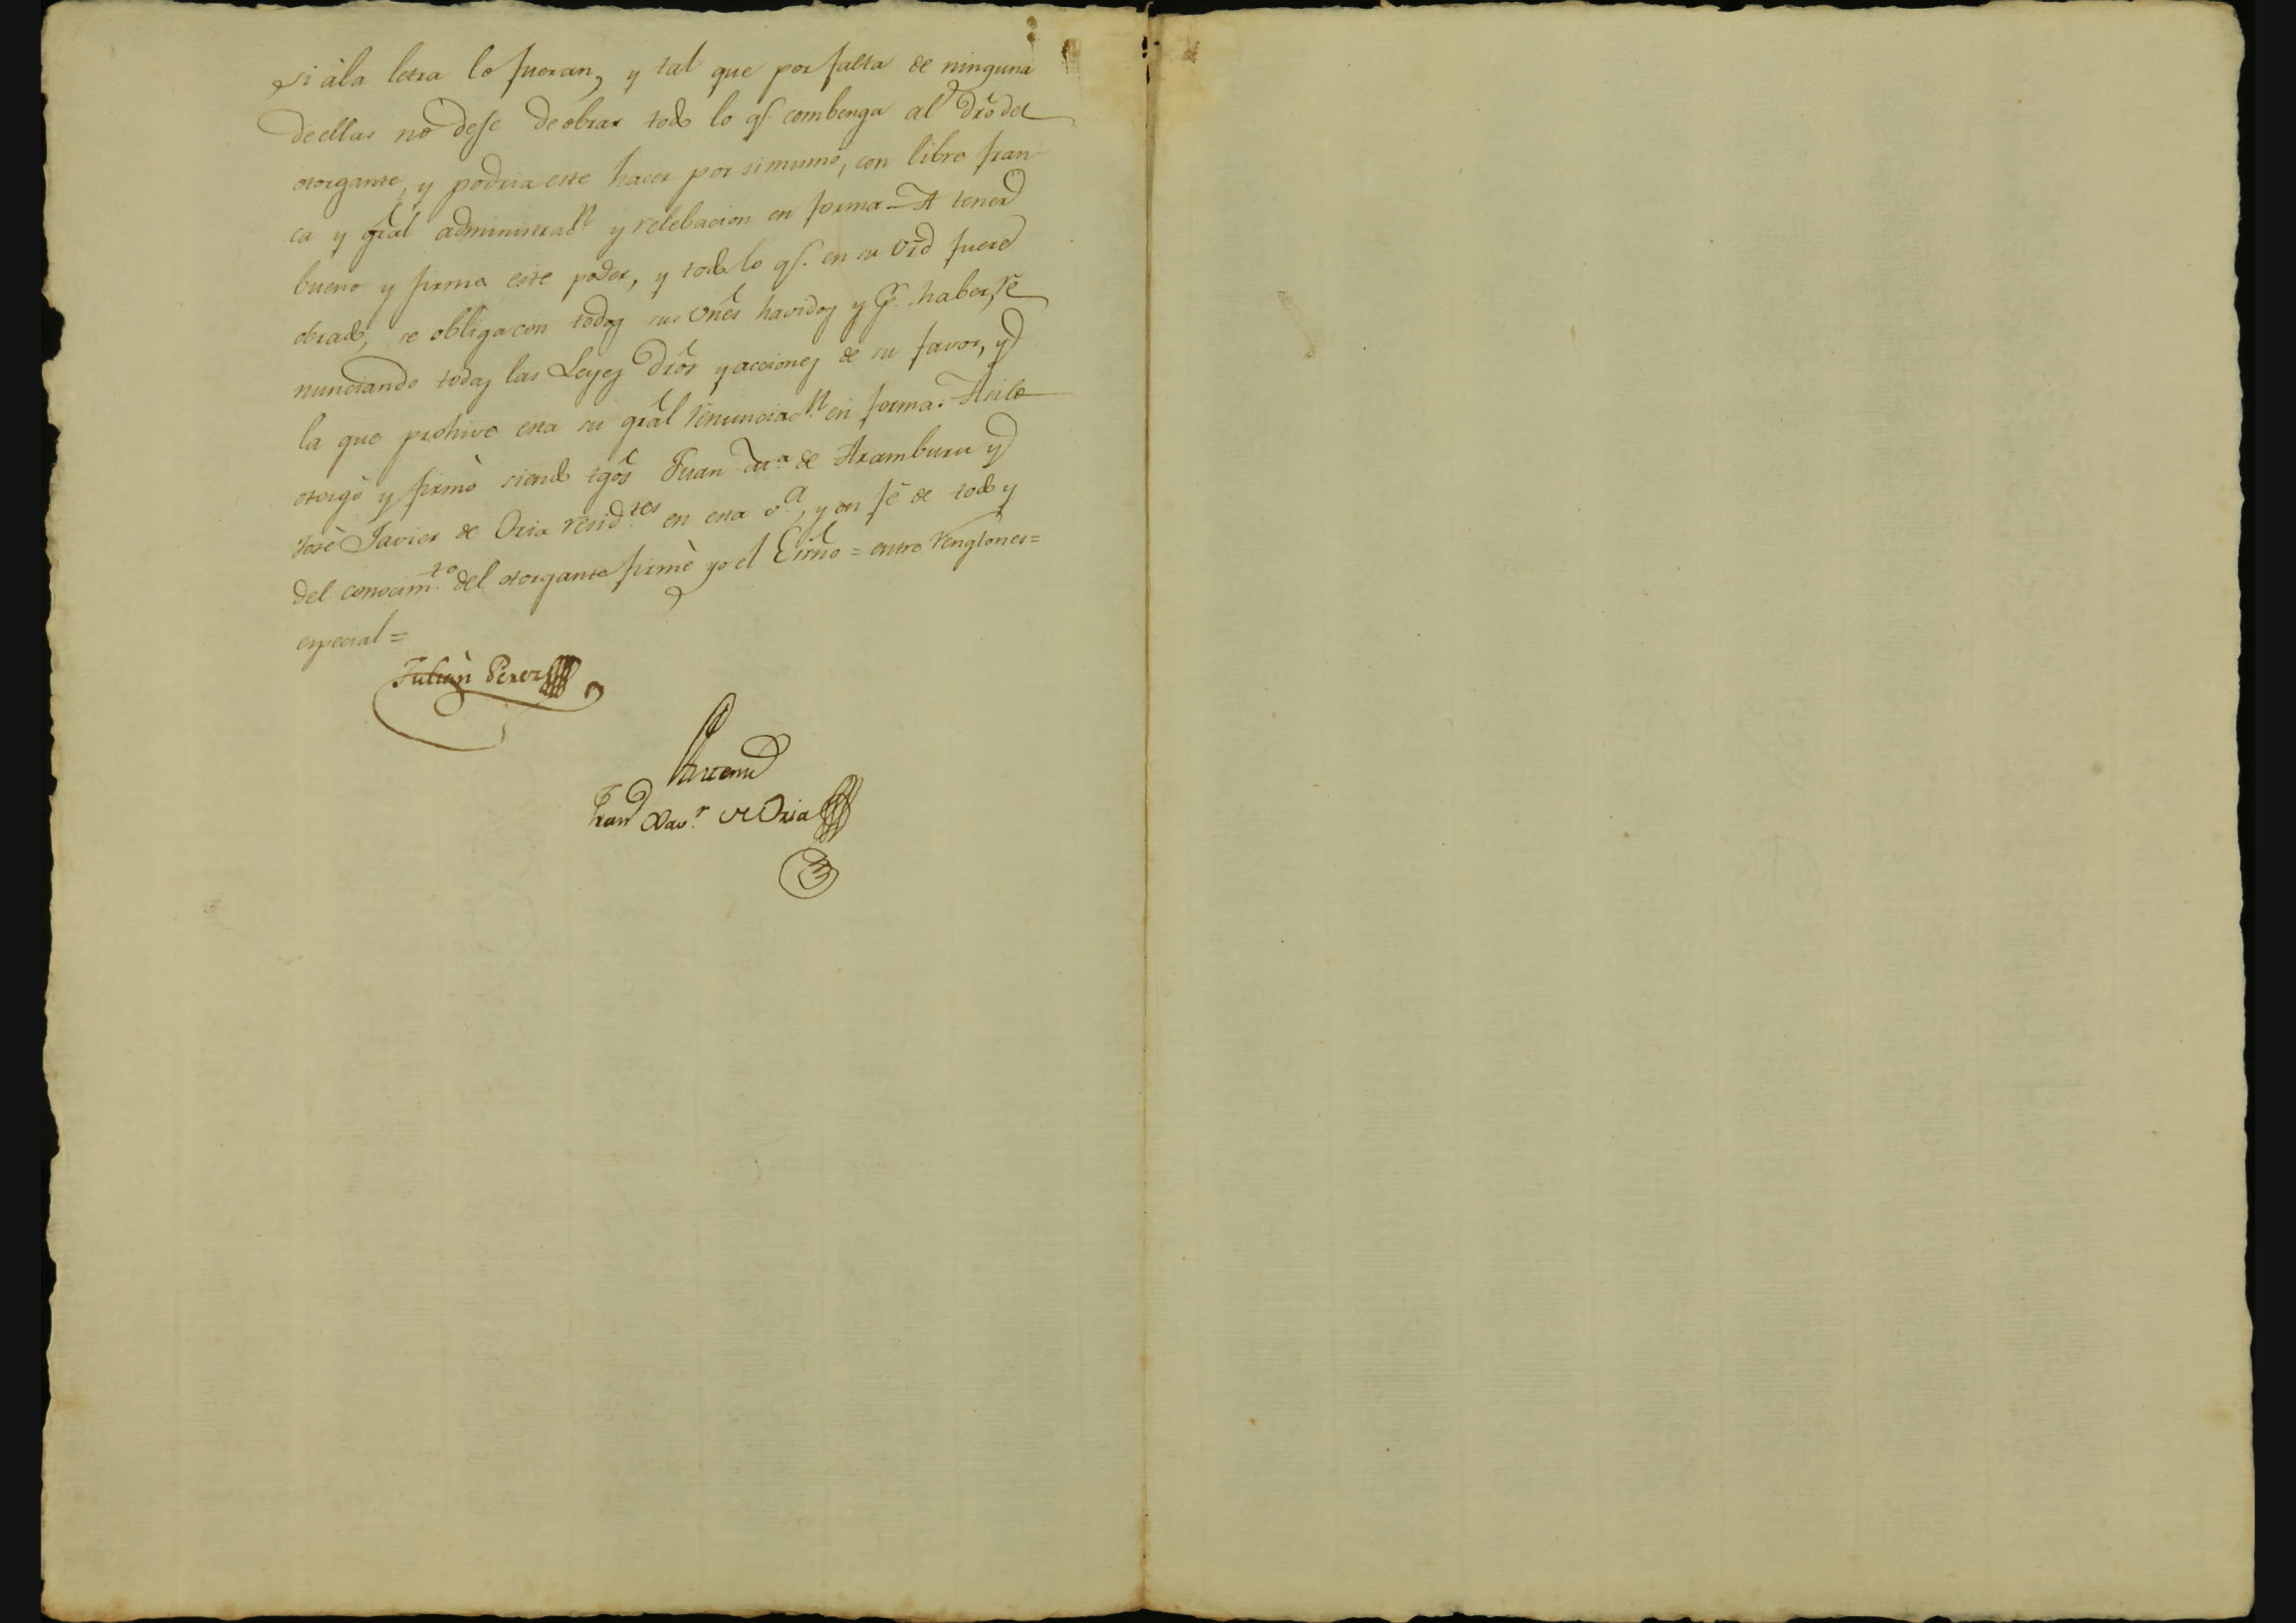 si àla letra lo fueran, y tal que por falta de ninguna
de ellas no dese de obrar todo lo q.e combenga al dr̃o del
otorgante, y podria este hacer por si mismo, con libre fran-
ca y gr̃al administrac.n y relebacion en forma. A tener
bueno y firme este poder, y todo lo q.e en su vrd fuere
obrado, se obliga con todos sus vñes havidos y p.r haber, re
nunciando todas las Leyes dr̃os y acciones de su favor, y
la que prohive esta su gr̃al renunciac.n en forma. Asi lo
otorgò y firmò siendo tgõs Juan M.a de Aramburu y
José Javier de Oria resid.tes en esta v.a, y en fè de todo y
del conocim.to del otorgante firmè yo el Esrño = entre renglones =
especial =
Julian Perez
Ante mi
Fran Xav.r de Oria